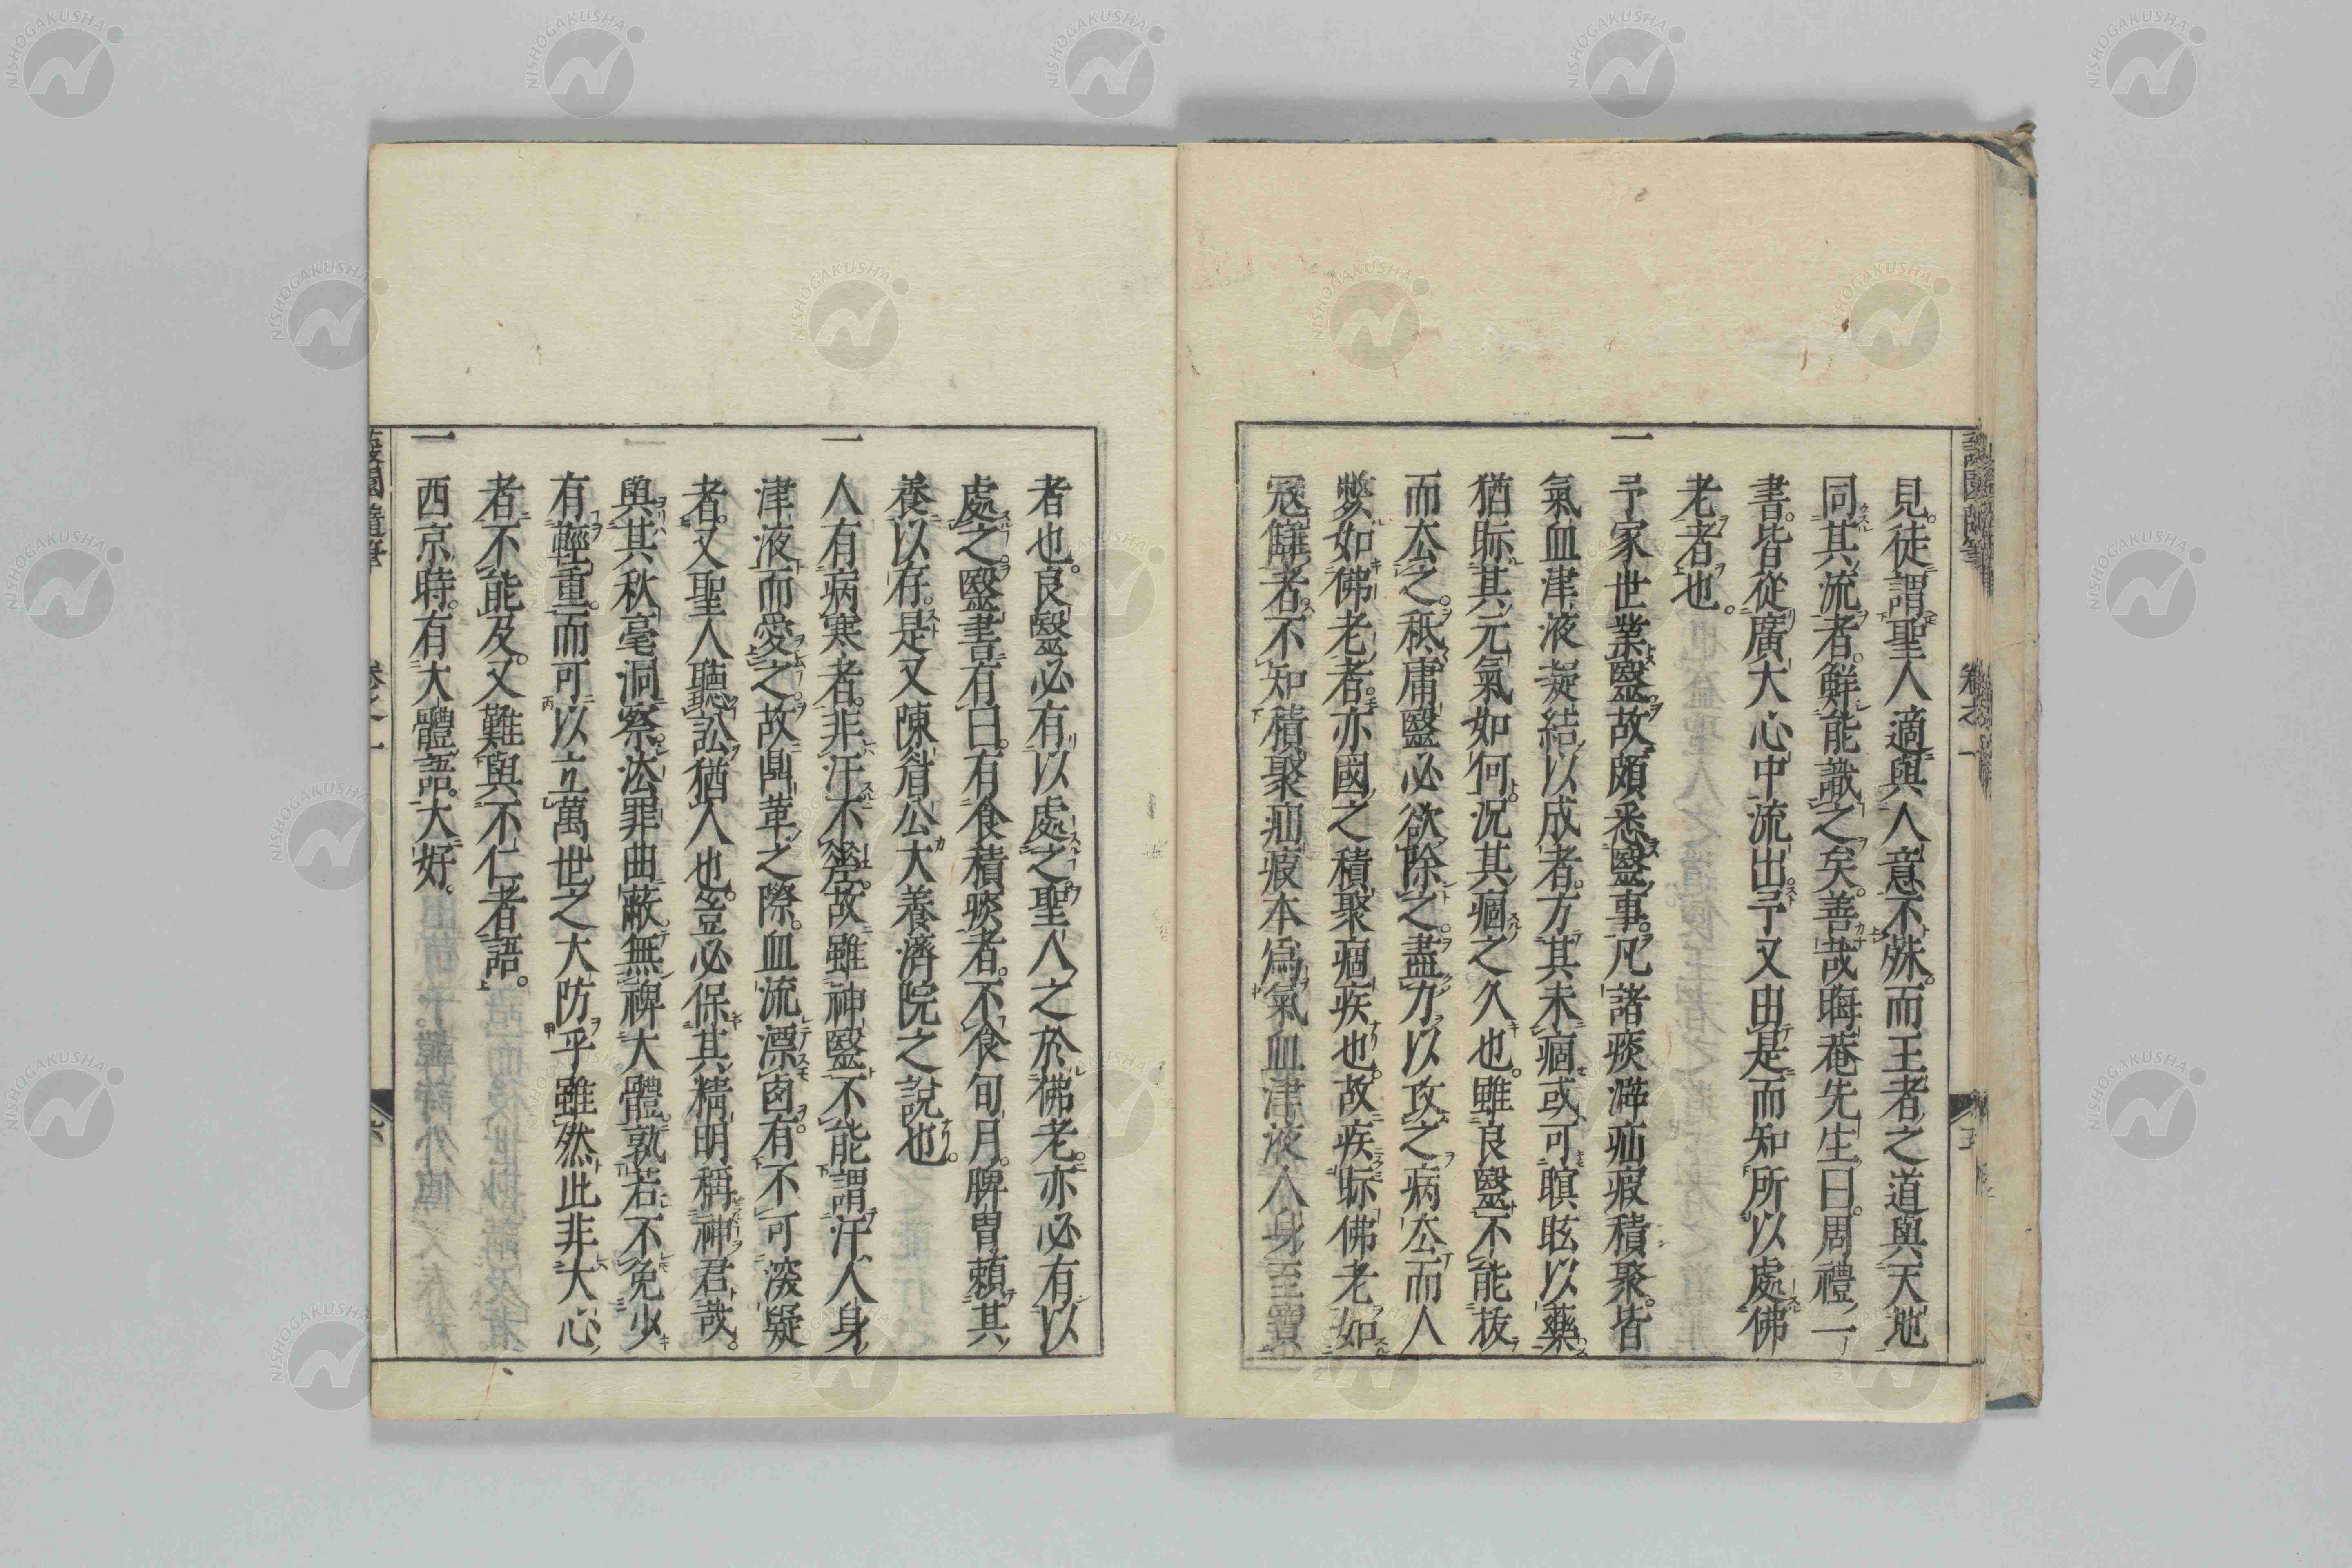 見。徒謂聖人適與人意不殊。而王者之道與天地
同其流者。鮮能識之矣。善哉晦菴先生曰。周禮一
書。皆從廣大心中流出。予又由是而知所以處佛
老者也。
一 予家世業醫。故頗悉醫事。凡諸痰澼疝瘕積聚。皆
氣血津液凝結以成者。方其未痼。或可瞑眩以藥。
猶眎其元氣如何。況其痼之久也。雖良醫不能拔
而去之。秖庸醫必欲除之。盡力以攻之。病去而人
斃。如佛老者。亦國之積聚痼疾也。故疾眎佛老如
寇讎者。不知積聚疝瘕本爲氣血津液人身至寶
者也。良醫必有以處之。聖人之於佛老。亦必有以
處之。醫書有曰。有食積痰者。不食旬月。脾胃賴其
養以存。是又陳眉公大養濟院之說也。
一 人有病寒者。非汗不瘥。故雖神醫不能謂汗人身
津液而愛之。故鼎革之際。血流漂鹵。有不可深疑
者。又聖人聽訟猶人也。豈必保其精明稱神君哉。
與其秋毫洞察。法罪曲蔽。無裨大體。孰若不免少
有輕重。而可以立萬世之大防乎。雖然此非大心
者不能及。又難與不仁者語。
一 西京時。有大體語。大好。
蘐園隨筆 卷之一 五
蘐園隨筆 卷之一 六
NISHOGAKUSHA